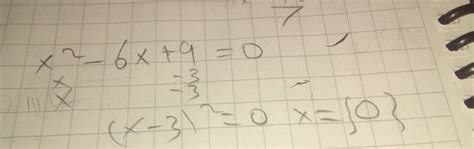 7
x² - 6x + 9 = 0
x -3
x -3
(x - 3)² = 0 x = {0}